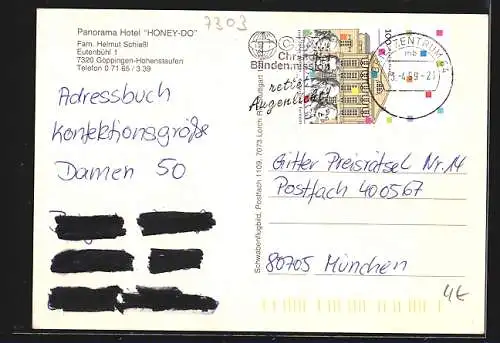 7303
Panorama Hotel "HONEY-DO"
Fam. Helmut Schießl
Eutenbühl 1
7320 Göppingen-Hohenstaufen
Telefon 0 71 65 / 3 39
Adressbuch
Konfektionsgröße
Damen 50
Schwabenflugbild, Postfach 1109, 7073 Lorch
Blindenmission
rettet
Augenlicht
100
ZENTRUM
mb
Gitter Preisrätsel Nr. 14
Postfach 400567
80705 München
4€